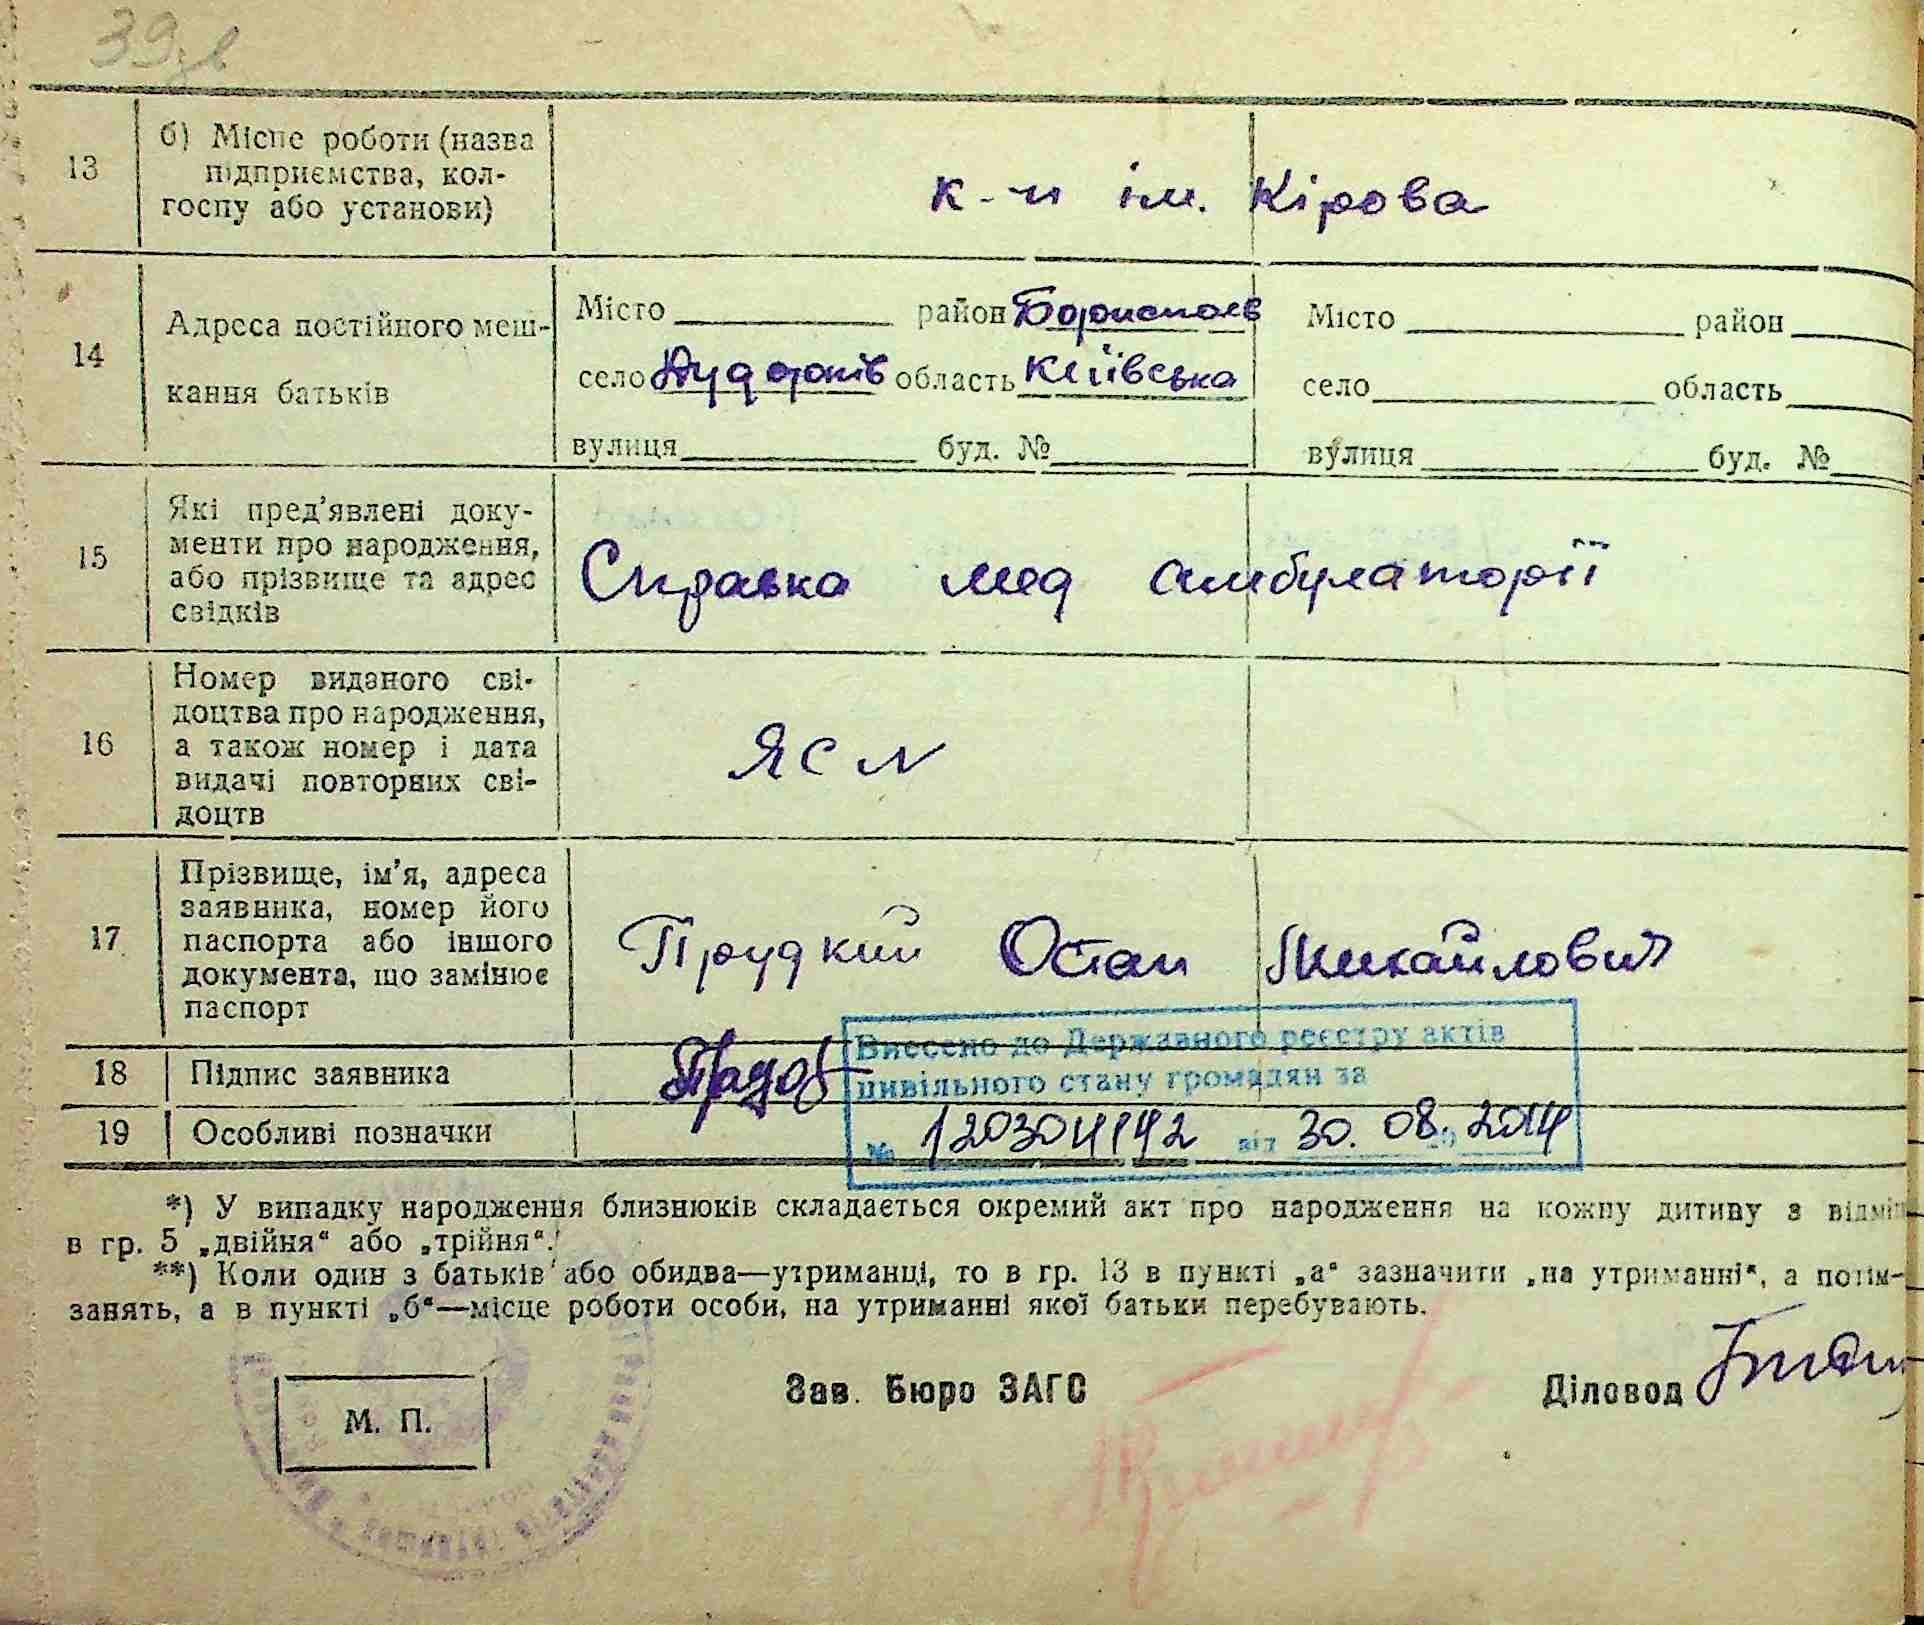 39зв
13
б) Місце роботи (назва
підприємства, кол-
госпу або установи)
к-п ім. Кірова
14
Адреса постійного меш-
кання батьків
Місто район Бориспол в
село Дударків область Київська
вулиця буд. №
Місто район
село область
вулиця буд. №
15
Які пред'явлені доку-
менти про народження,
або прізвище та адрес
свідків
Справка мед амбулаторії
16
Номер виданого сві-
доцтва про народження,
а також номер і дата
видачі повторних сві-
доцтв
ЯС N
17
Прізвище, ім'я, адреса
заявника, номер його
паспорта або іншого
документа, що замінює
паспорт
Прудкий Остап Михайлович
18
Підпис заявника
19
Особливі позначки
Внесено до Державного реєстру актів
цивільного стану громадян за
№ від 30.08.2014
*) У випадку народження близнюків складається окремий акт про народження на кожну дитину з відміт
в гр. 5 „двійня“ або „трійня“.
**) Коли один з батьків або обидва—утриманці, то в гр. 13 в пункті „а“ зазначити „на утриманні“, а потім-
занять, а в пункті „б“—місце роботи особи, на утриманні якої батьки перебувають.
М. П.
Зав. Бюро ЗАГС
Діловод